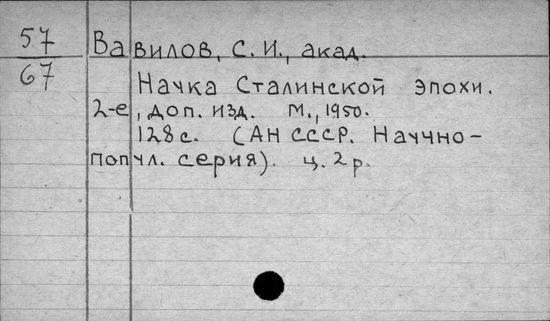 57 Вавилов, С. И., акад.
67 Наука Сталинской эпохи.
2-е, доп. изд. М., 1950.
128 с. (АН СССР. Научно-
попул. серия). ц. 2 р.